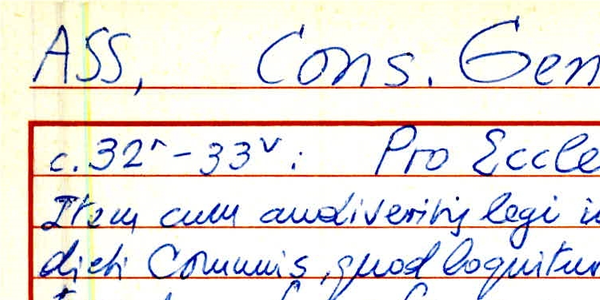 ASS, Cons. Gen
c. 32r - 33v: Pro Eccle
Item cum audiveritis legi in
dicti Communis, quod loquitur